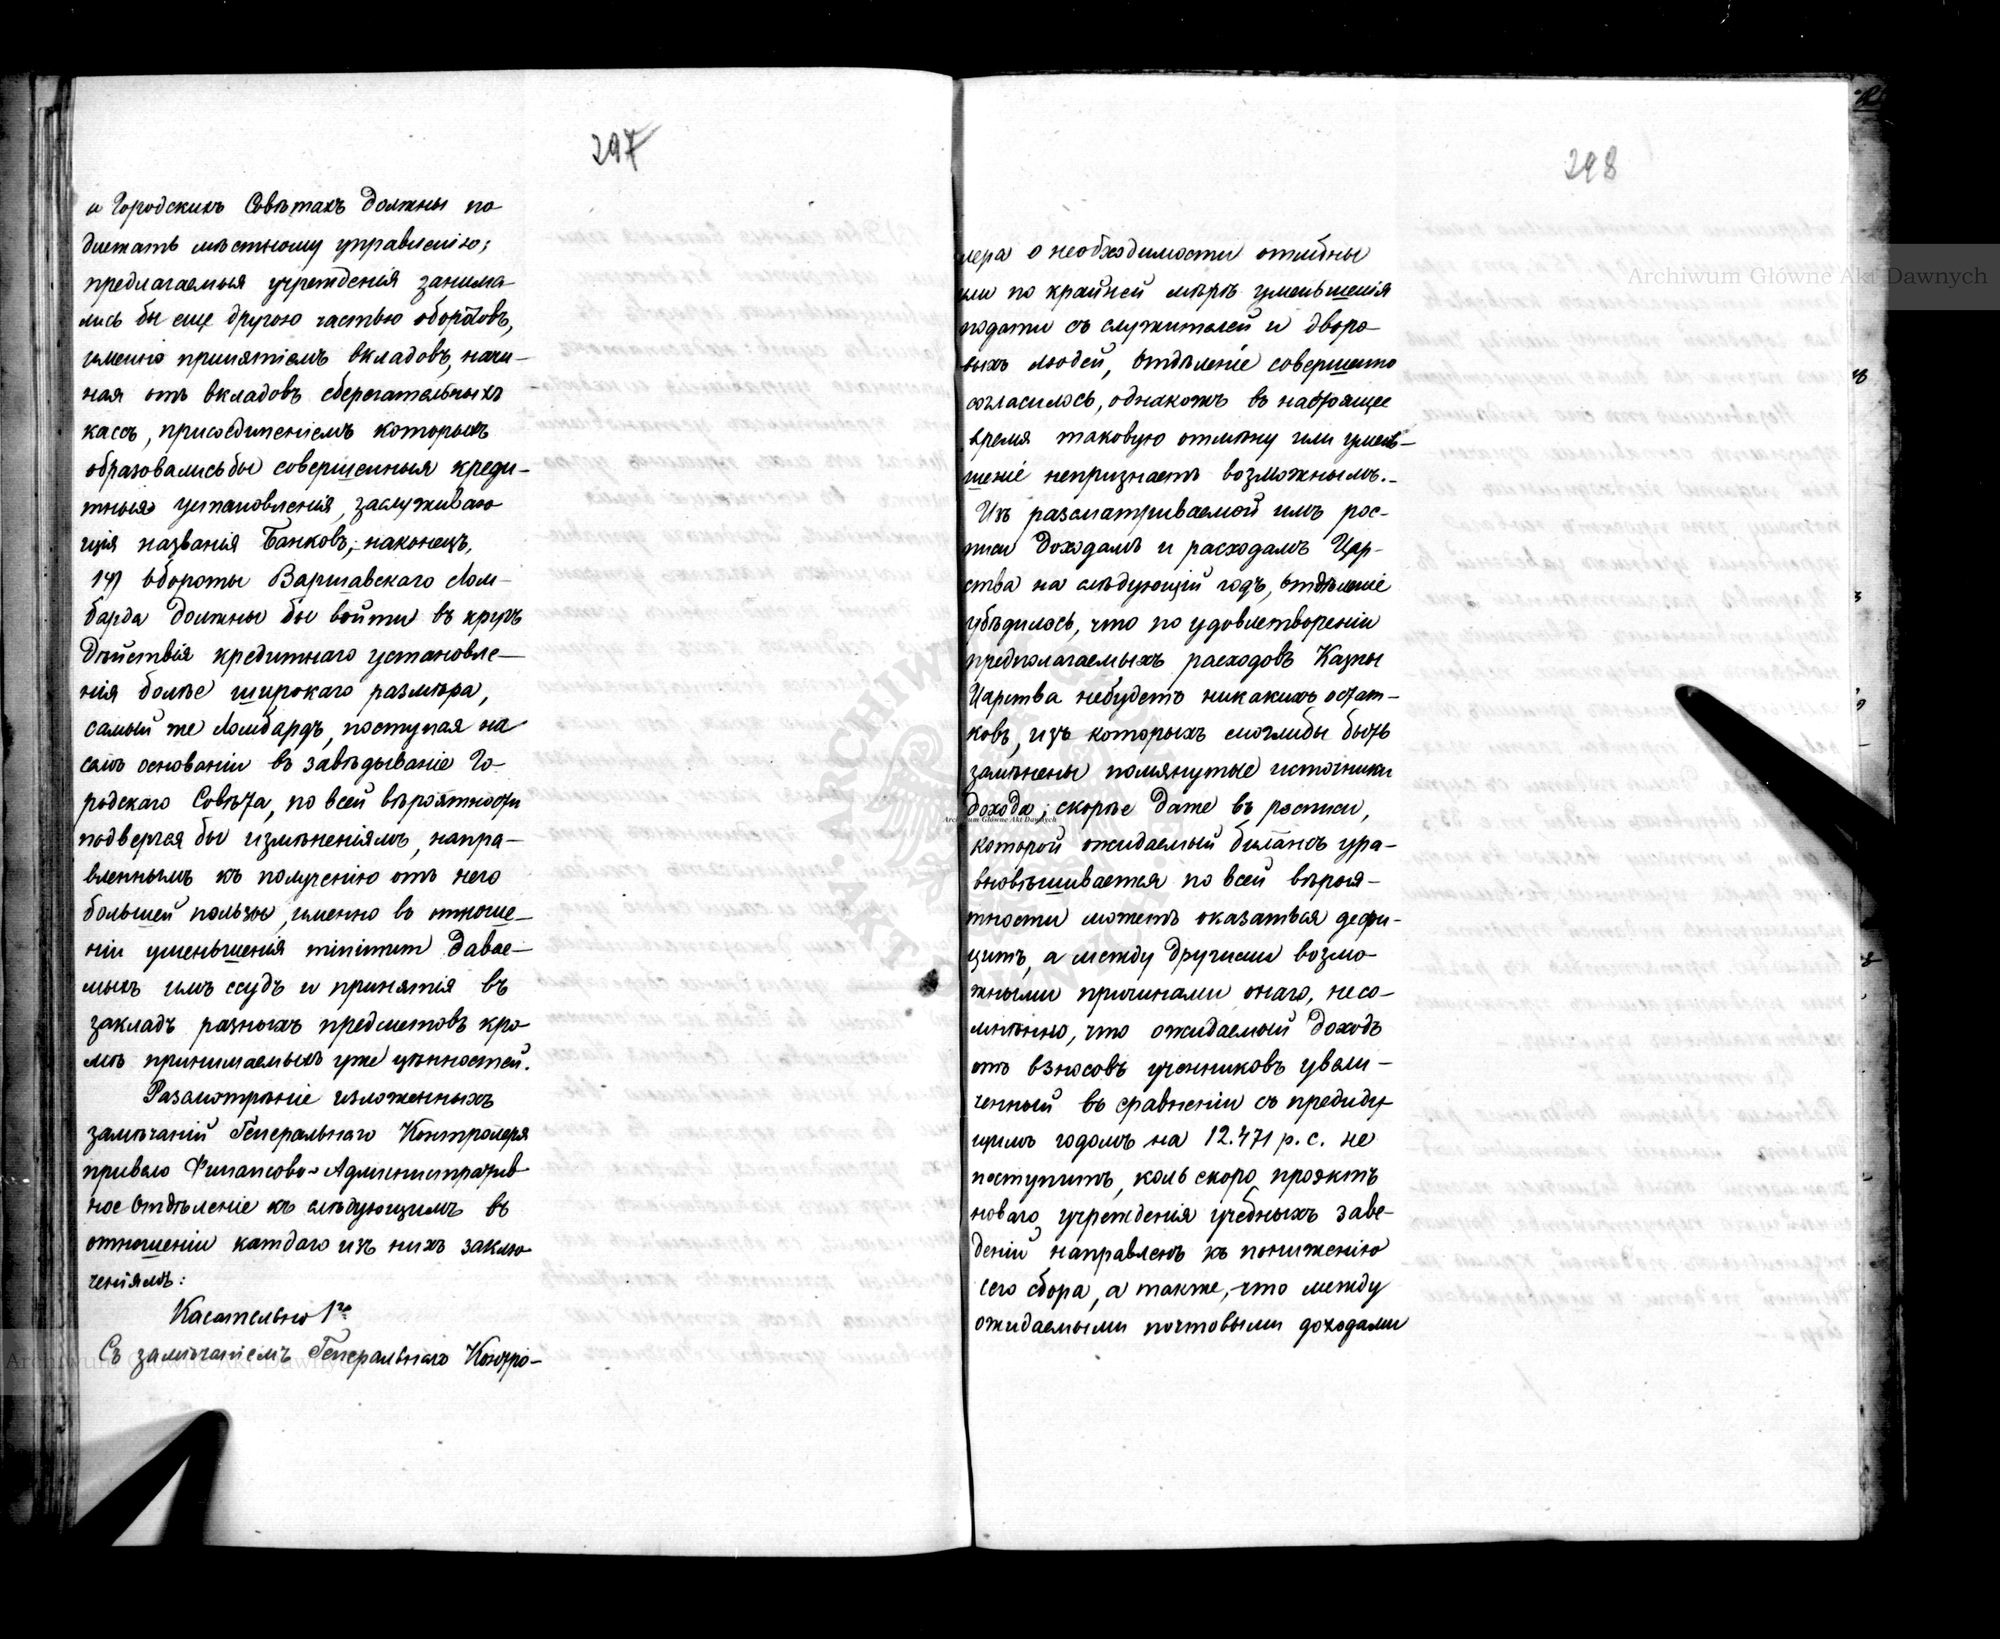 297
и Городскихъ Совѣтахъ должны по
длежать мѣстному управленію;
предлагаемыя учрежденія занима
лись бы еще другою частью оборотовъ,
именно принятіемъ вкладовъ, начи-
ная отъ вкладовъ сберегательныхъ
кассъ, присоединеніемъ которыхъ
образовались бы совершенныя креди-
тныя установленія, заслуживаю
щія названія Банковъ; наконецъ,
14) обороты Варшавскаго Лом-
барда должны бы войти въ кругъ
дѣйствія кредитнаго установле-
нія болѣе широкаго размѣра,
самый же Ломбардъ, поступая на
семъ основаніи въ завѣдываніе Го-
родскаго Совѣта, по всей вѣроятности
подвергся бы измѣненіямъ, напра-
вленнымъ къ полученію отъ него
большей пользы, именно въ отноше-
ніи уменьшенія minimum давае-
мыхъ имъ ссудъ и принятія въ
закладъ разныхъ предметовъ кро-
мѣ принимаемыхъ уже цѣнностей.
Разсмотрѣніе изложенныхъ
замѣчаній Генеральнаго Контролера
привело Финансово-Административ
ное Отдѣленіе къ слѣдующимъ въ
отношеніи каждаго изъ нихъ заклю
ченіямъ:
Касательно 1го
Съ замѣчаніемъ Генеральнаго Контро-
298
лера о необходимости отмѣны
или по крайней мѣрѣ уменьшенія
подати съ служителей и дворо-
выхъ людей, Отдѣленіе совершенно
согласилось, однакожъ въ настоящее
время таковую отмѣну или умень-
шеніе непризнаетъ возможнымъ.-
Изъ разсматриваемой имъ рос-
писи доходамъ и расходамъ Цар-
ства на слѣдующій годъ, Отдѣленіе
убѣдилось, что по удовлетвореніи
предполагаемыхъ расходовъ Казны
Царства небудетъ никакихъ остат-
ковъ, изъ которыхъ моглибы быть
замѣнены помянутые источники
дохода; скорѣе даже въ росписи,
которой ожидаемый балансъ ура-
вновѣшивается по всей вѣроя-
тности можетъ оказаться дефи-
цитъ, а между другими возмо-
жными причинами онаго, несо-
мнѣнно, что ожидаемый доходъ
отъ взносовъ учениковъ увели-
ченный въ сравненіи съ предиду
щимъ годомъ на 12.471 р. с. не
поступитъ, коль скоро проэктъ
новаго учрежденія учебныхъ заве-
деній направленъ къ пониженію
сего сбора, а также, что между
ожидаемыми почтовыми доходами
Archiwum Główne Akt Dawnych
Archiwum Główne Akt Dawnych
Archiwum Główne Akt Dawnych